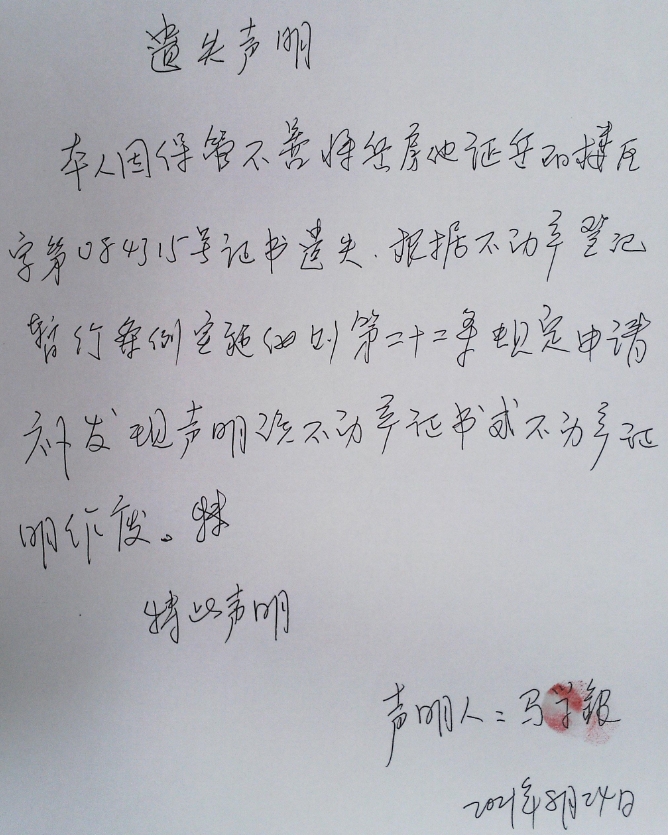 遗失声明
本人因保管不善将岳房地证岳阳楼区
字第084315号证书遗失.根据不动产登记
暂行条例实施细则第二十二条规定申请
补发现声明该不动产证书或不动产证
明作废。特
特此声明
声明人:马学银
2021年8月24日